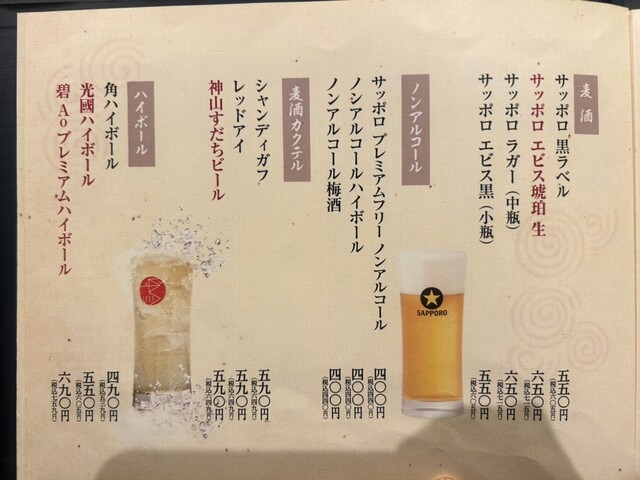 麦酒
サッポロ 黒ラベル
五五〇円
(税込六〇五円)
サッポロ エビス琥珀 生
六五〇円
(税込七一五円)
サッポロ ラガー(中瓶)
六五〇円
(税込七一五円)
サッポロ エビス黒(小瓶)
五五〇円
(税込六〇五円)
SAPPORO
ノンアルコール
サッポロ プレミアムフリー ノンアルコール
四〇〇円
(税込四四〇円)
ノンアルコールハイボール
四〇〇円
(税込四四〇円)
ノンアルコール梅酒
四〇〇円
(税込四四〇円)
麦酒カクテル
シャンディガフ
五九〇円
(税込六四九円)
レッドアイ
五九〇円
(税込六四九円)
神山すだちビール
五九〇円
(税込六四九円)
ハイボール
角ハイボール
四九〇円
(税込五三九円)
光國ハイボール
五五〇円
(税込六〇五円)
碧 Ao プレミアムハイボール
六九〇円
(税込七五九円)